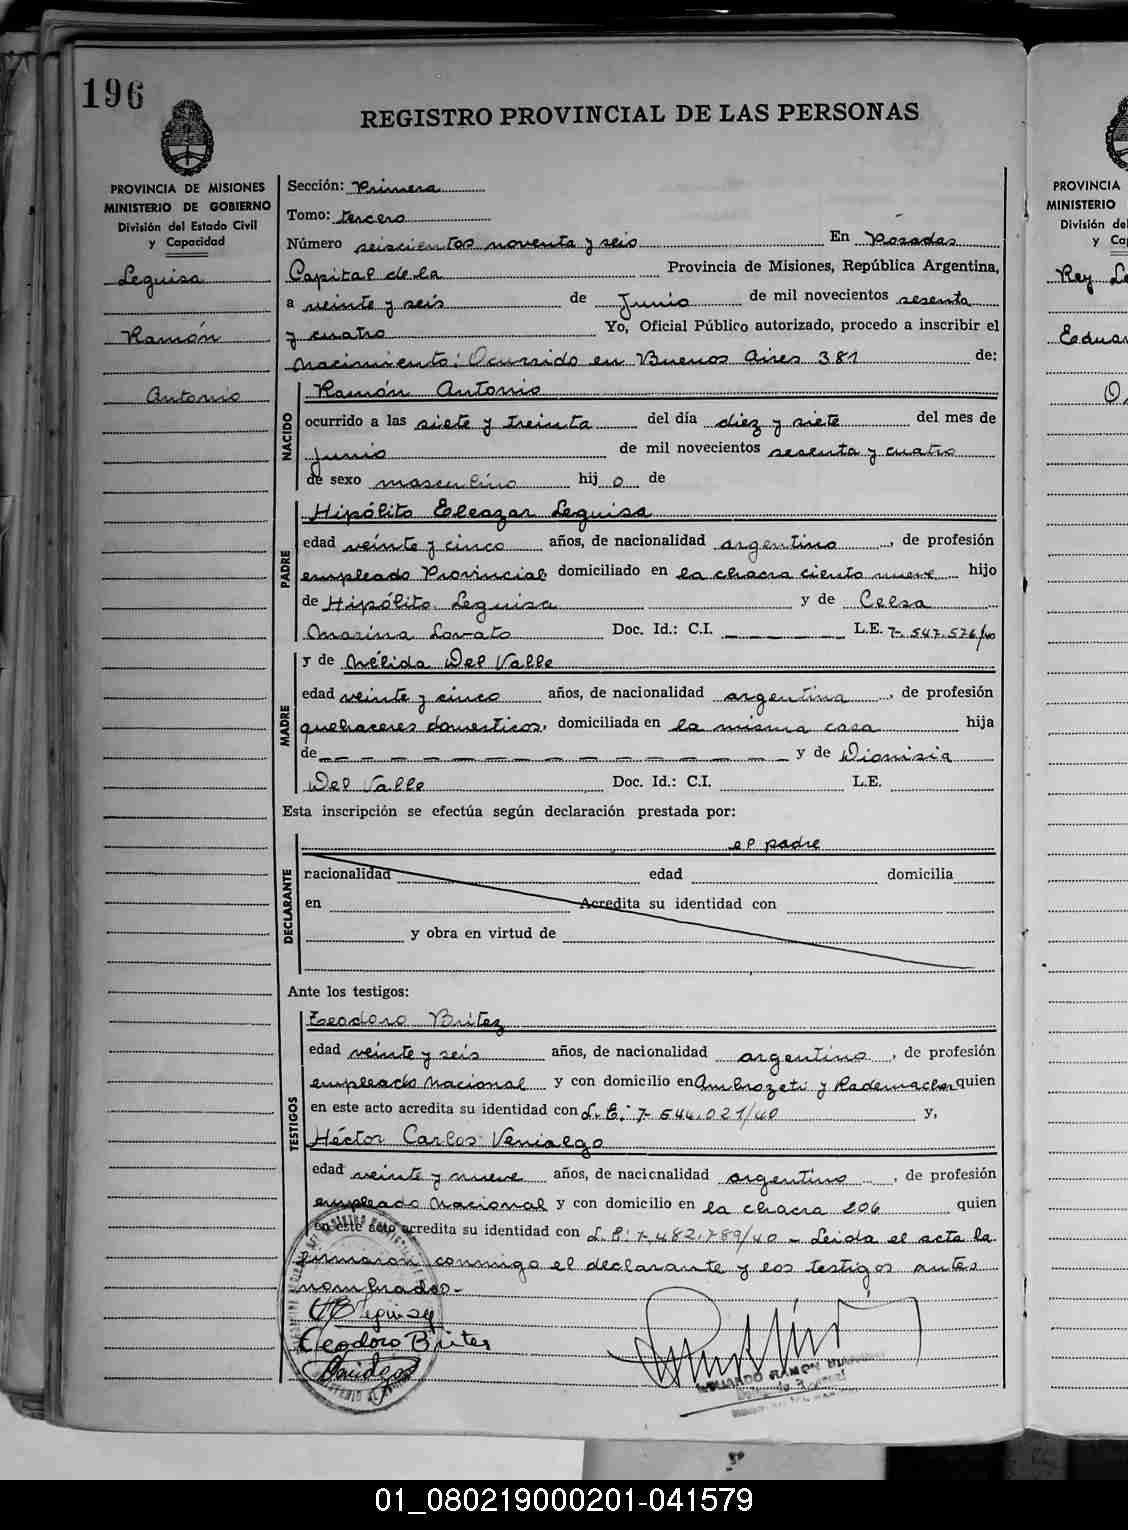 196
REGISTRO PROVINCIAL DE LAS PERSONAS
PROVINCIA DE MISIONES
MINISTERIO DE GOBIERNO
División del Estado Civil
y Capacidad
Leguisa
Ramón
Antonio
Sección: Primera
Tomo: tercero
Número seiscientos noventa y seis En Posadas
Capital de la Provincia de Misiones, República Argentina,
a veinte y seis de Junio de mil novecientos sesenta
y cuatro Yo, Oficial Público autorizado, procedo a inscribir el
nacimiento: Ocurrido en Buenos Aires 381 de:
NACIDO
Ramón Antonio
ocurrido a las siete y treinta del día diez y siete del mes de
Junio de mil novecientos sesenta y cuatro
de sexo masculino hij o de
PADRE
Hipólito Eleazar Leguisa
edad veinte y cinco años, de nacionalidad argentino, de profesión
empleado Provincial domiciliado en la chacra ciento nueve hijo
de Hipólito Leguisa y de Celsa
Marina Lovato Doc. Id.: C.I. L.E. 7-547.576/40
MADRE
y de Nélida Del Valle
edad veinte y cinco años, de nacionalidad argentina, de profesión
quehaceres domesticos, domiciliada en la misma casa hija
de y de Dionisia
Del Valle Doc. Id.: C.I. L.E.
Esta inscripción se efectúa según declaración prestada por:
DECLARANTE
el padre
racionalidad edad domicilia
en Acredita su identidad con
y obra en virtud de
Ante los testigos:
TESTIGOS
Teodoro Britez
edad veinte y seis años, de nacionalidad argentino, de profesión
empleado Nacional y con domicilio en Ambrozeti y Rademacher quien
en este acto acredita su identidad con L.E: 7-544.021/40 y,
Héctor Carlos Venialgo
edad veinte y nueve años, de nacicnalidad argentino, de profesión
empleado Nacional y con domicilio en la chacra 206 quien
en este acto acredita su identidad con L.E: 7.482.789/40 - Leida el acta la
firmaron conmigo el declarante y los testigos antes
nombrados.-
Teodoro Britez
EDUARDO RAMON
PROVINCIA
MINISTERIO
División del
y Cap
Rey Le
Eduar
01_080219000201-041579